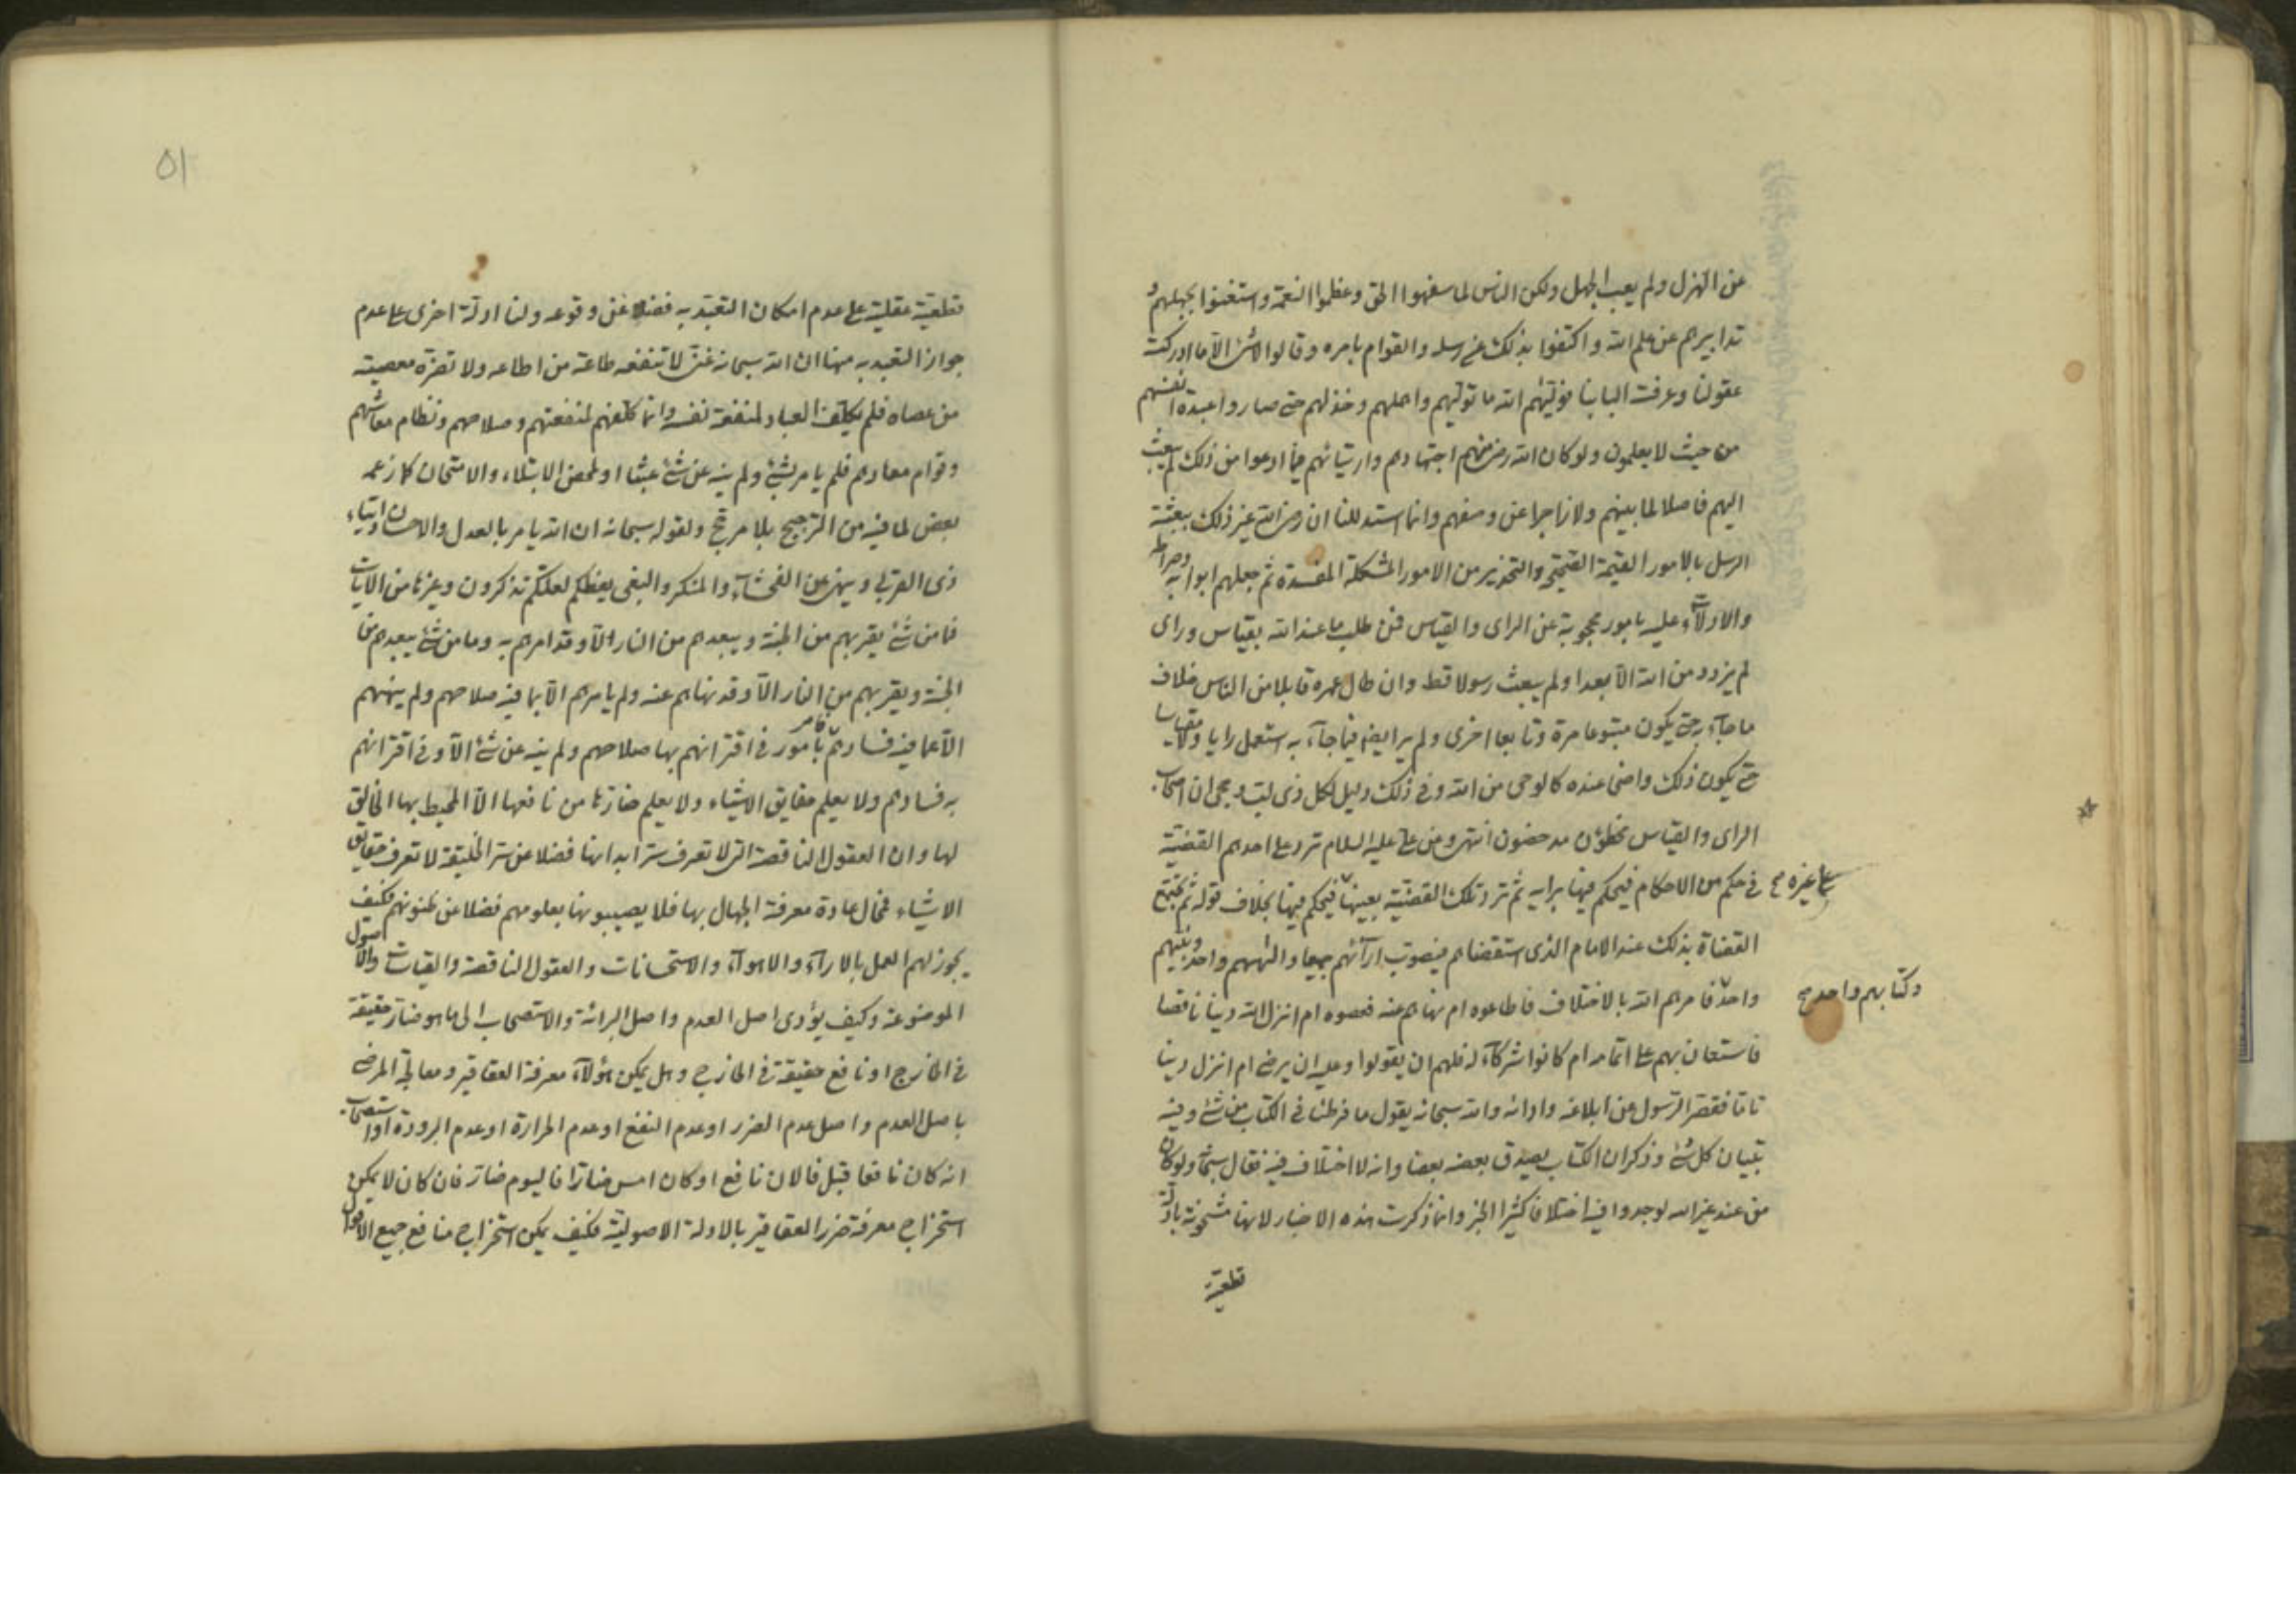 عن الهزل ولم يعب الجهل ولكن الناس لما سفهوا الحق وغمطوا النعمة واستغنوا بجهلهم و
تدابيرهم عن علم الله واكتفوا بذلك عن رسله والقوام بامره وقالوا لا شئ الا ما ادركته
عقولنا وعرفته البابنا فوليٰهم الله ما تولهم واهملهم وخذلهم حتى صاروا عبدة انفسهم
من حيث لا يعلمون ولو كان الله رضى منهم اجتهادهم وارتيائهم فيما ادعوا من ذلك لم يبعث
اليهم فاصلا لما بينهم ولا زاجرا عن وصفهم وانما استدللنا ان رضى الله غير ذلك ببعثه
الرسل بالامور القيمة الصحيحة والتحذير من الامور المشكلة المفسدة ثم جعلهم ابوابه وصراطه
والادلاء عليه بامور محجوبة عن الراى والقياس فمن طلب ما عند الله بقياس وراى
لم يزدد من الله الا بعدا ولم يبعث رسولا قط وان طال عمره قابلا من الناس خلاف
ما جاء به حتى يكون متبوعا مرة وتابعا اخرى ولم ير ايضا فيما جاء به استعمل رايا ولا مقياسا
حتى يكون ذلك واضحا عنده كالوحى من الله وفى ذلك دليل لكل ذى لب وحجى ان اصحاب
الراى والقياس مخطؤن مدحضون انتهى وعن على عليه السلام ترد على احدهم القضية
فى حكم من الاحكام فيحكم فيها برايه ثم ترد تلك القضية بعينها فيحكم فيها بخلاف قوله ثم يجتمع
على غيره صح
القضاة بذلك عند الامام الذى استقضاهم فيصوب ارائهم جميعا والٰههم واحد ونبيهم
واحد فامرهم الله بالاختلاف فاطاعوه ام نهاهم عنه فعصوه ام انزل الله دينا ناقصا
وكتابهم واحد صح
فاستعان بهم على اتمامه ام كانوا شركاء له فلهم ان يقولوا وعليه ان يرضى ام انزل دينا
تاما فقصر الرسول عن ابلاغه وادائه والله سبحانه يقول ما فرطنا فى الكتاب من شئ وفيه
تبيان كل شئ وذكر ان الكتاب يصدق بعضه بعضا وانه لا اختلاف فيه فقال سبحانه ولو كان
من عند غير الله لوجدوا فيه اختلافا كثيرا الخبر وانما ذكرت هذه الاخبار لانها مشحونة بادلة
قطعية
٥١
قطعية عقلية على عدم امكان التعبد به فضلا عن وقوعه ولنا ادلة اخرى على عدم
جواز التعبد به منها ان الله سبحانه غنى لا تنفعه طاعة من اطاعه ولا تضره معصية
من عصاه فلم يكلف العباد لمنفعة نفسه وانما كلفهم لمنفعتهم وصلاحهم ونظام معاشهم
وقوام معادهم فلم يامر بشئ ولم ينه عن شئ عبثا او لمحض الابتلاء والامتحان كما زعمه
بعض لما فيه من الترجيح بلا مرجح ولقوله سبحانه ان الله يامر بالعدل والاحسان وايتاء
ذى القربى وينهى عن الفحشاء والمنكر والبغى يعظكم لعلكم تذكرون وغيرها من الايات
فما من شئ يقربهم من الجنة ويبعدهم من النار الا وقد امرهم به وما من شئ يبعدهم من
الجنة ويقربهم من النار الا وقد نهاهم عنه ولم يامرهم الا بما فيه صلاحهم ولم ينههم
الا عما فيه فسادهم فامر بامور فى اقترانهم بها صلاحهم ولم ينه عن شئ الا وفى اقترانهم
به فسادهم ولا يعلم حقايق الاشياء ولا يعلم ضارها من نافعها الا المحيط بها الخالق
لها وان العقول الناقصة التى لا تعرف ستر ابدانها فضلا عن ستر الخليقة لا تعرف حقايق
الاشياء فمحال عادة معرفة الجهال بها فلا يصيبونها بعلومهم فضلا عن ظنونهم فكيف
يجوز لهم العمل بالاراء والاهواء والاستحسانات والعقول الناقصة والقياسات والاصول
الموضوعة وكيف يؤدى اصل العدم واصل البرائة والاستصحاب الى ما هو ضار حقيقة
فى الخارج او نافع حقيقة فى الخارج وهل يمكن هؤلاء معرفة العقاقير ومعالجة المرضى
باصل العدم واصل عدم الضرر او عدم النفع او عدم الحرارة او عدم البرودة او استصحاب
انه كان نافعا قبل فالان نافع او كان امس ضارا فاليوم ضار فان كان لا يمكن
استخراج معرفة ضرر العقاقير بالادلة الاصولية فكيف يمكن استخراج منافع جميع الاقوال